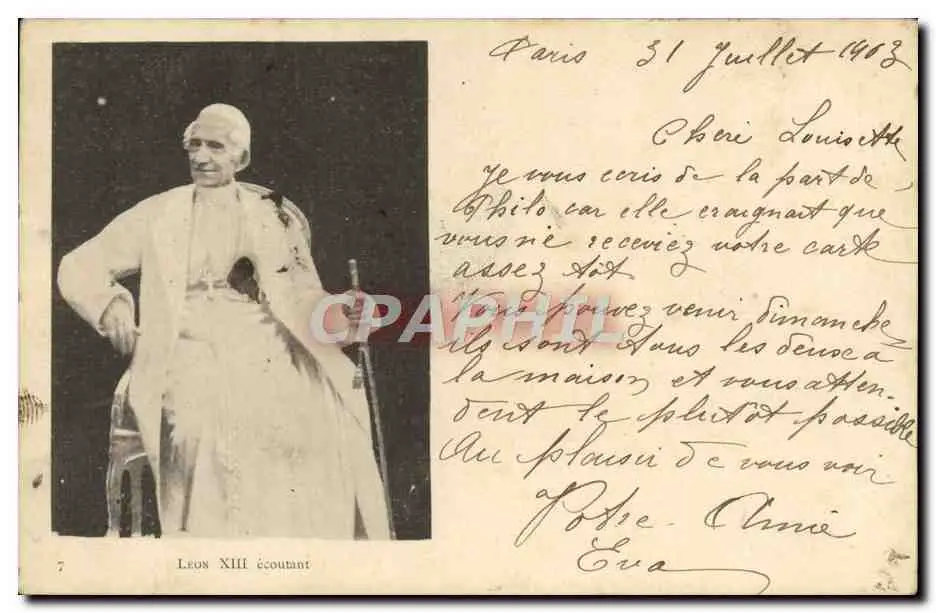 Paris 31 Juillet 1903
Cheri Louisette
Je vous ecris de la part de
Philo car elle craignait que
vous ne receviez votre carte
assez tôt
Vous pouvez venir dimanche
ils sont tous les deux a
la maison et vous atten-
dent le plutôt possible
Au plaisir de vous voir
Votre Amie
Eva
CPAPHIL
7 LÉON XIII écoutant